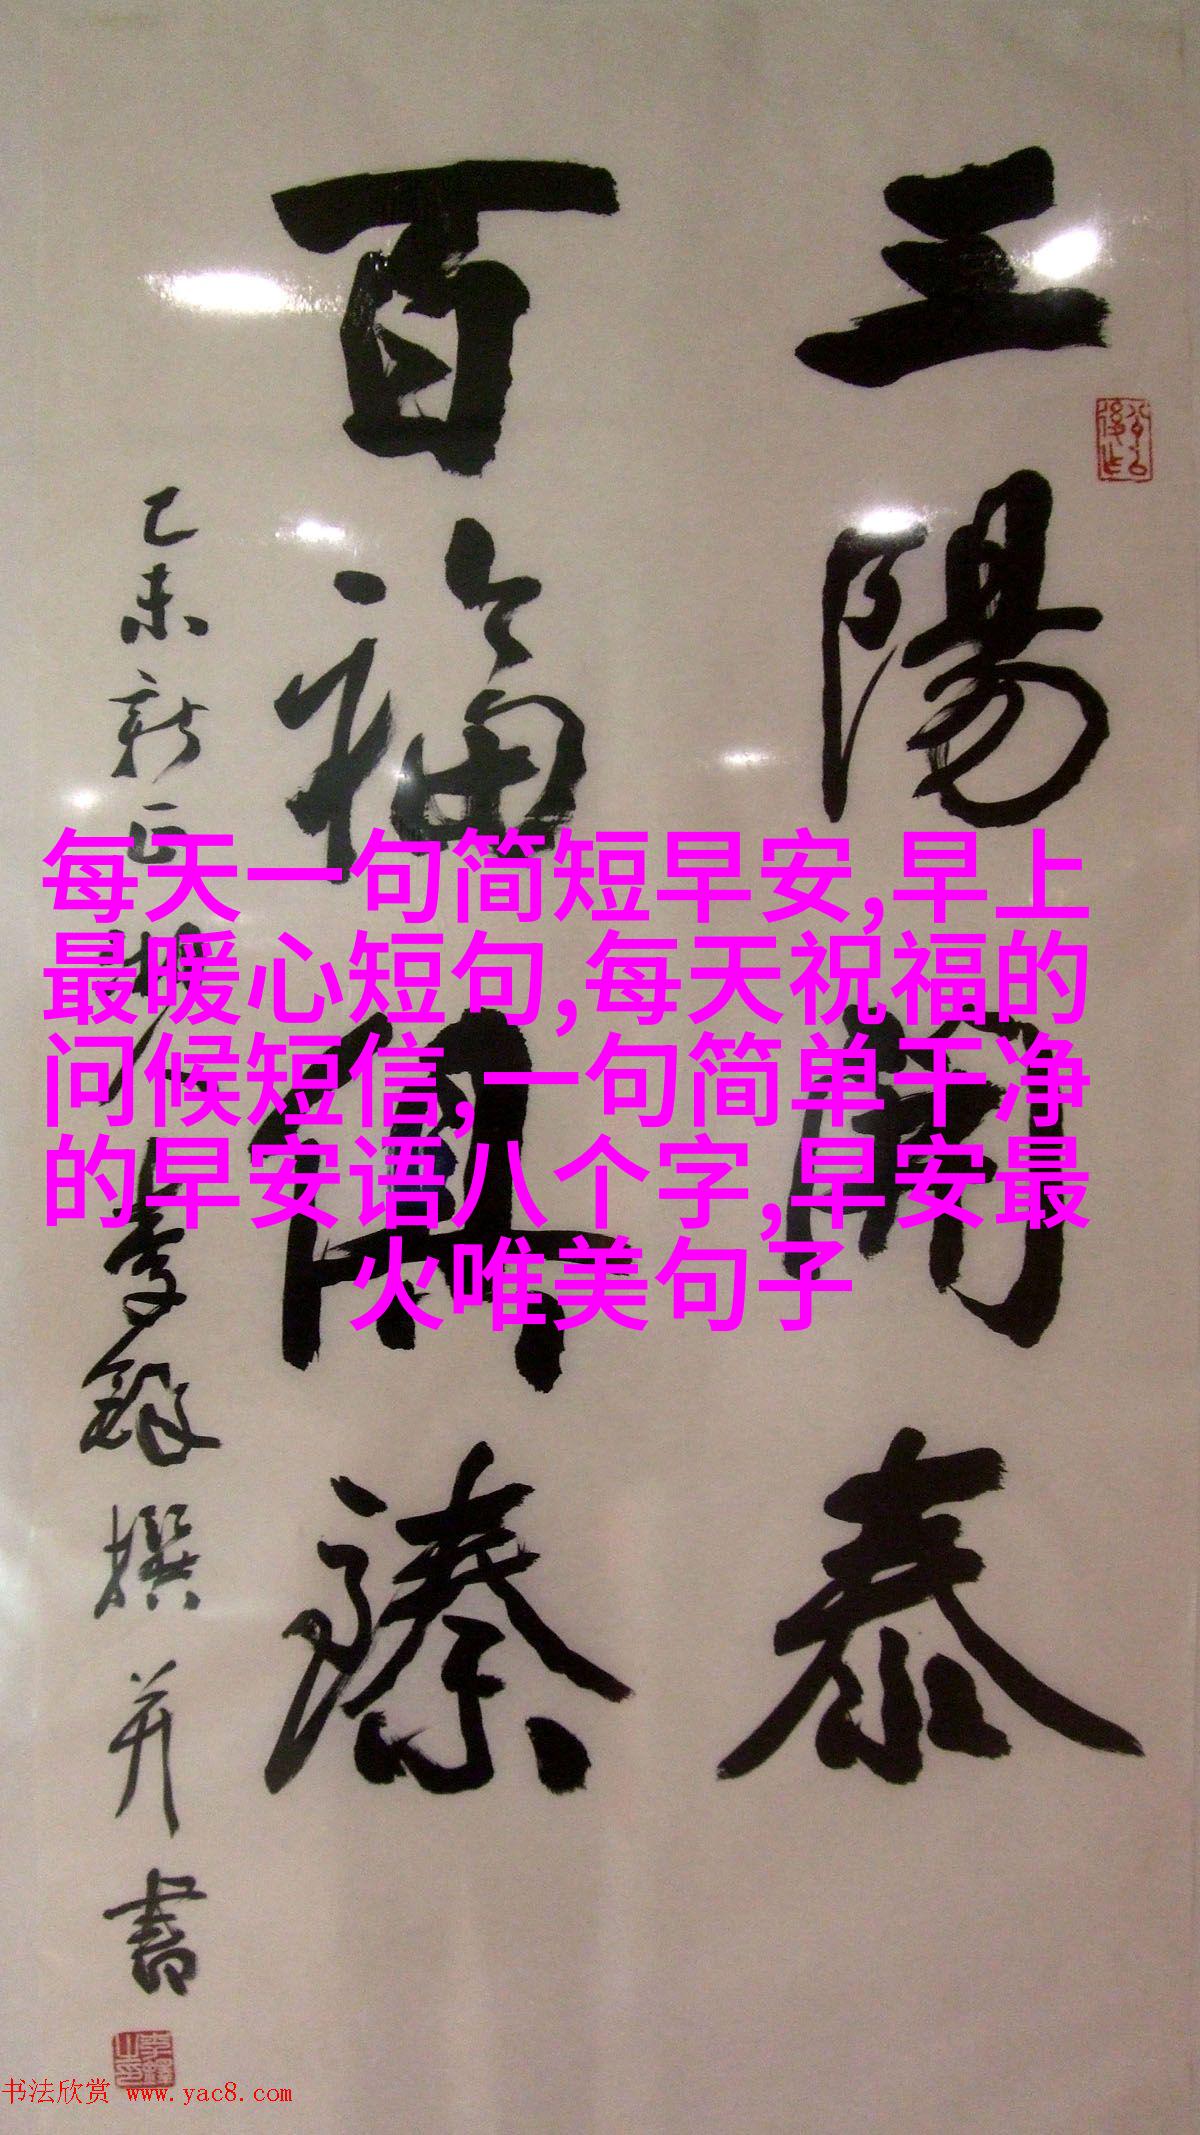 三陽開泰
百福俱臻
乙未新正湘人李鐸撰并書
每天一句简短早安,早上
最暖心短句,每天祝福的
问候短信,一句简单干净
的早安语八个字,早安最
火唯美句子
书法欣赏 www.yac8.com